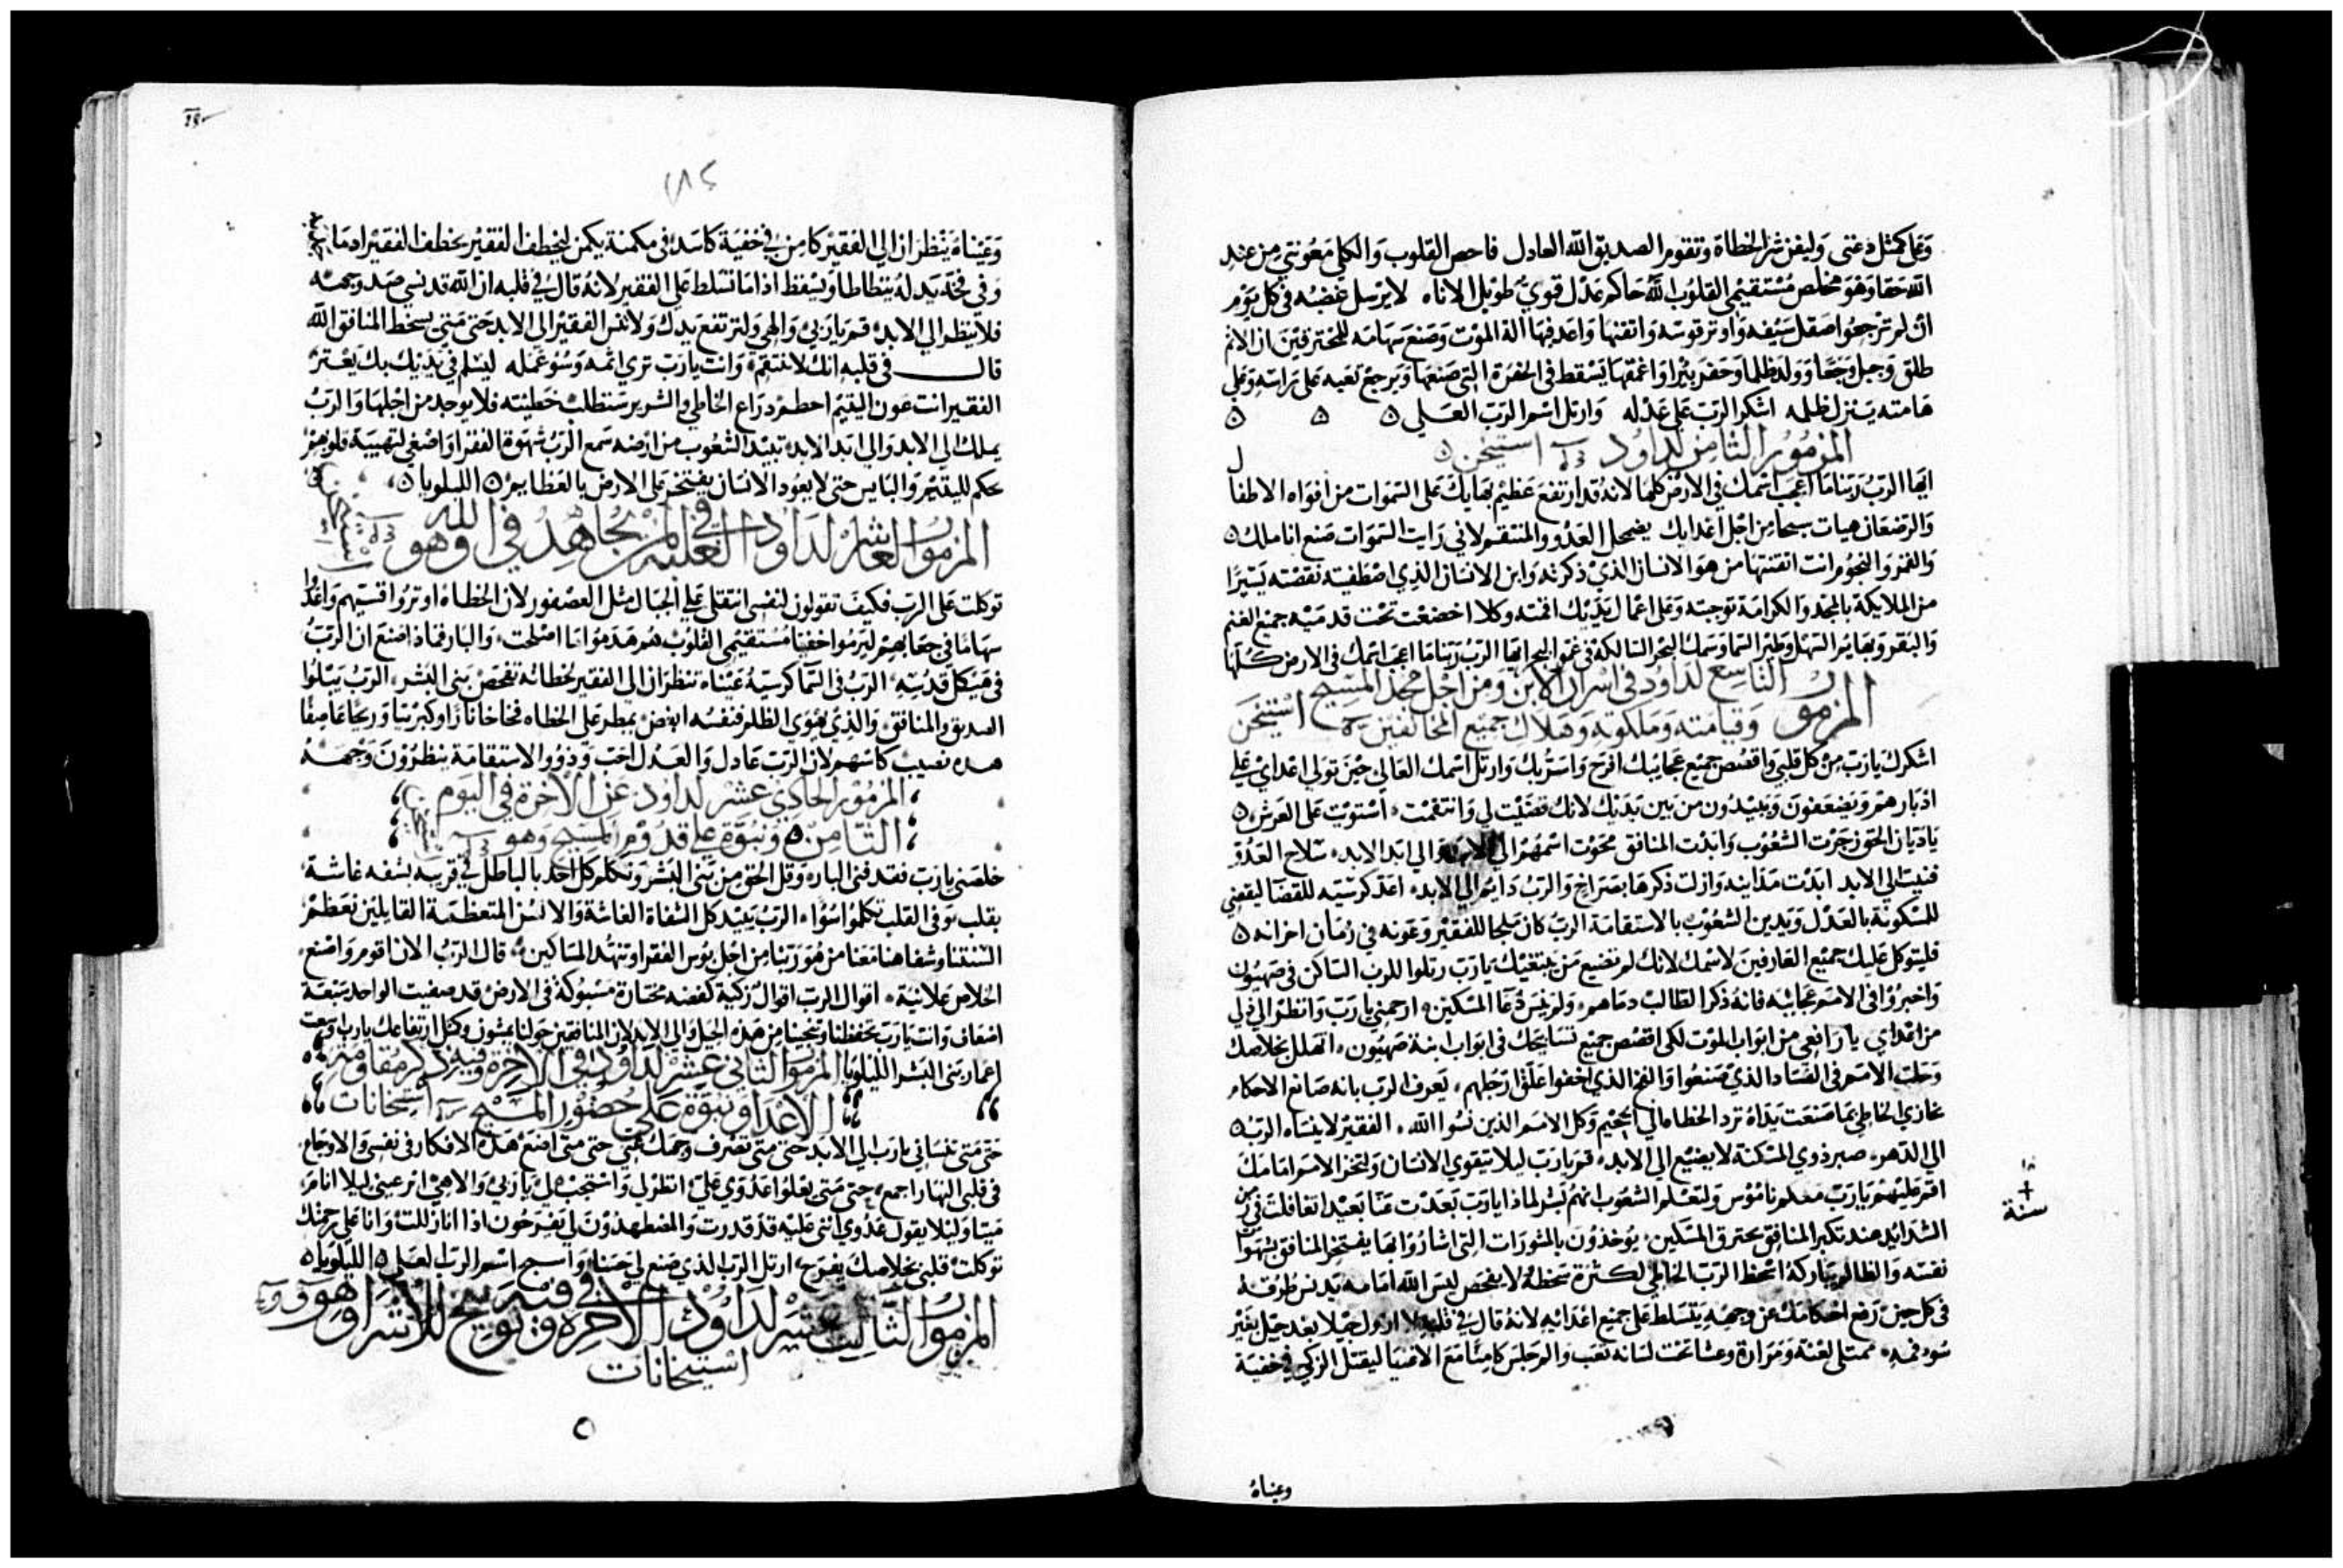 وعلى كمثل دعتى وليفن شر الخطاة وتقوم الصديق الله العادل فاحص القلوب والكلى معونتي من عند
الله حقا وهو مخلص مستقيمي القلوب الله حاكم عدل قوي طويل الاناه لا يرسل غضبه في كل يوم
ان لم ترجعوا صقل سيفه واوتر قوسه واتقنها واعد فيها الة الموت وصنع سهامه للمحترقين ان الاثم
طلق وحبل وجعا وولد ظلما وحفر بيرا واعمقها يسقط في الحفرة التي صنعها ويرجع تعبه على راسه وعلى
هامته ينزل ظلمه اشكر الرب على عدله وارتل اسم الرب العلي
المزمور الثامن لداود استيخن
ايها الرب ربنا ما اعجب اسمك في الارض كلها لانه قد ارتفع عظيم بهايك على السموات من افواه الاطفال
والرضعان هيات سبحا من اجل اعدايك يضمحل العدو والمنتقم لاني رايت السموات صنع اناملك
والقمر والنجوم انت اتقنتها من هو الانسان الذي ذكرته وابن الانسان الذي اصطفيته نقصته يسيرا
من الملايكة بالمجد والكرامة توجته وعلى اعمال يديك اقمته وكلا اخضعت تحت قدميه جميع الغنم
والبقر وبهايم السهل وطير السما وسمك البحر السالكة في البحر ايها الرب ربنا ما اعجب اسمك في الارض كلها
المزمور التاسع لداود في اسرار الابن ومن اجل مجد المسيح
وقيامته وملكوته وهلاك جميع المخالفين استيخن
اشكرك يارب من كل قلبي واقصص جميع عجايبك افرح واسر بك وارتل اسمك العالي حين تولى اعداي على
ادبارهم ويضعفون ويبيدون من بين يديك لانك قضيت لي وانتقمت استويت على العرش
ياديان الحق زجرت الشعوب وابدت المنافق محوت اسمهم الى الابد والى ابد الابد سلاح العدو
فنيت الى الابد ابدت مداينه وازلت ذكرها بصراخ والرب دايم الى الابد اعد كرسيه للقضا ليقضي
للمسكونة بالعدل ويدين الشعوب بالاستقامة الرب كان ملجا للفقير وعونه في زمان احزانه
فليتوكل عليك جميع العارفين لاسمك لانك لم تضيع من يبتغيك يارب رتلوا للرب الساكن في صهيون
واخبروا في الامم عجايبه فانه ذكر الطالب دماهم ولم ينس دعا المسكين ارحمني يارب وانظر الى ذلي
من اعداي يا رافعي من ابواب الموت لكي اقصص جميع تسابيحك في ابواب ابنة صهيون اتهلل بخلاصك
وحلت الامم في الفساد الذي صنعوا والفخ الذي اخفوا علق ارجلهم يعرف الرب بانه صانع الاحكام
بما صنعت يداه ترد الخطاه الى الجحيم وكل الامم الذين نسوا الله الفقير لا ينساه الرب
الى الدهر صبر ذوي المسكنة لا يضيع الى الابد قم يارب ليلا يتقوى الانسان ولتخز الامم امامك
اقم عليهم يارب معلم ناموس ولتعلم الشعوب انهم بشر لماذا يارب بعدت عنا بعيدا تغافلت في
الشدايد عند تكبر المنافق يحترق المسكين يوخذون بالمشورات التي اشاروا بها يفتخر المنافق بشهوات
نفسه والظالم يباركه اسخط الرب الخاطي لكثرة سخطه لا يفحص ليس الله امامه يدنس طرقه
في كل حين رفع احكامك عن وجهه يتسلط على جميع اعدائه لانه قال في قلبه لا ازول جيلا بعد جيل بغير
سوء فمه ممتلى لعنة ومرارة وغشا تحت لسانه تعب والم جلس كامنا مع الاغنيا ليقتل الزكي في خفية
وعيناه
سنة
١٨٤
وعيناه ينظران الى الفقير كامن في خفية كاسد في مكمنة يكمن ليخطف الفقير يخطف الفقير اذ ما
وفي فخه يدله يتطاطا ويسقط اذا ما تسلط على الفقير لانه قال في قلبه ان الله قد نسي صد وجهه
فلا ينظر الى الابد قم يا ربي والهي ولترتفع يدك ولا تنس الفقير الى الابد حتى متى يسخط المنافق الله
قال في قلبه انك لا تنتقم وانت يارب ترى اثمه وسوء عمله ليسلم في يديك بك يعتز
الفقير انت عون اليتيم احطم ذراع الخاطي والشرير ستطلب خطيته فلا يوجد من اجلها والرب
يملك الى الابد والى ابد الابد تبيد الشعوب من ارضه سمع الرب شهوة الفقرا واصغى لتهيية قلوبهم
حكم لليتيم والبايس حتى لا يعود الانسان يفتخر على الارض بالعظايم الليلويا
المزمور العاشر لداود في الغلبة لمن يجاهد في الله وهو
استيخن
توكلت على الرب فكيف تقولون لنفسى انتقلي على الجبال مثل العصفور لان الخطاه اوتروا قسيهم واعدوا
سهاما في جعابهم ليرموا خفيا مستقيمي القلوب هم هدموا ما اصلحت والبار فماذا صنع ان الرب
في هيكل قدسه الرب في السما كرسيه عيناه تنظران الى الفقير لحظاته تفحص بني البشر الرب يبلوا
الصديق والمنافق والذي يهوى الظلم فنفسه ابغض يمطر على الخطاه فخاخا نارا وكبريتا وريحا عاصفا
هذه نصيب كاسهم لان الرب عادل والعدل احب وذوو الاستقامة ينظرون وجهه
المزمور الحادي عشر لداود عن الاخرة في اليوم
الثامن ونبوة على قدوم المسيح وهو
خلصني يارب فقد فنى الباره وقل الحق من بني البشر وتكلم كل احد بالباطل في قريبه بشفه غاشة
بقلب وفي القلب تكلموا اسوا الرب يبيد كل الشفاة الغاشة والالسن المتعظمة القايلين نعظم
السنتنا وشفاهنا معنا من هو ربنا من اجل بوس الفقرا وتنهد المساكين قال الرب الان اقوم واصنع
الخلاص علانية اقوال الرب اقوال زكية كفضه مختارة مسبوكة في الارض قد صفيت الواحد سبعة
اضعاف وانت يارب تحفظنا وتنجينا من هذه الجيل والى الابد لان المنافقين حولنا يمشون وكمثل ارتفاعك يارب وسعت
اعمار بني البشر الليلويا المزمور الثاني عشر لداود في الاخرة وفيه ذكر مقاومة
الاعدا ونبوة على حضور المسيح استيخانات
حتى متى تنساني يارب الى الابد حتى متى تصرف وجهك عني حتى متى اضع هذه الافكار في نفسي والاوجاع
في قلبي النهار اجمع حتى متى يعلوا عدوي علي انظر لي واستجب لي يا ربي والاهي انر عيني ليلا انام
ميتا وليلا يقول عدوي انني عليه قد قدرت والمضطهدون لي يفرحون اذا انا زللت وانا على رحمتك
توكلت قلبي بخلاصك يفرح ارتل الرب الذي صنع لي حسنا واسبح اسم الرب العلي الليلويا
المزمور الثالث عشر لداود في الاخرة فيه توبيخ للاشرار وهو
استيخانات